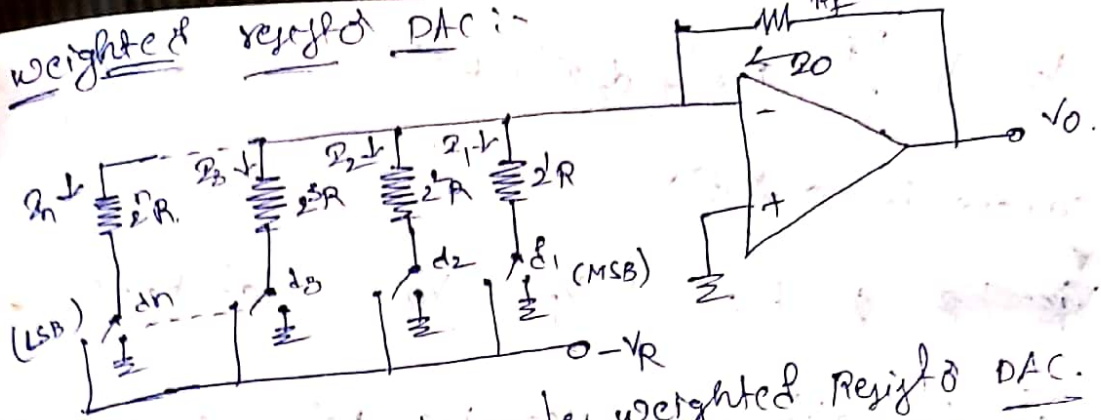 weighted resistor DAC :-
Rf
I0
V0.
In ↓ 2ⁿR.
I3 ↓ 2³R
I2 ↓ 2²R
I1 ↓ 2¹R
(LSB) dn
d3
d2
d1 (MSB)
-
+
-VR
weighted Resistor DAC.